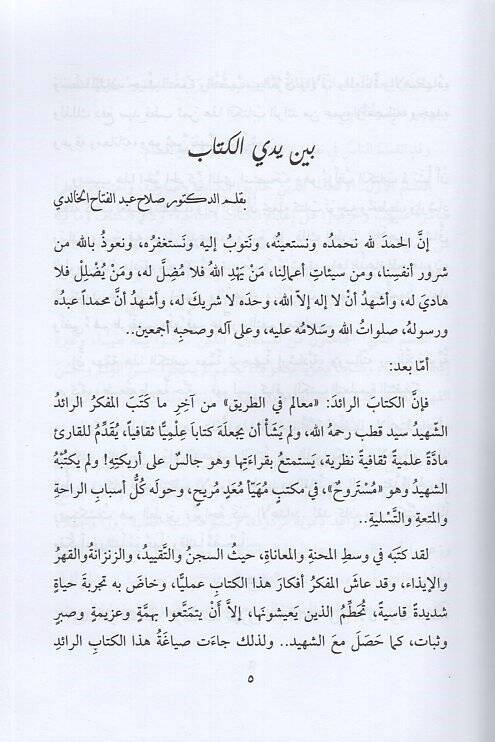 بين يدي الكتاب
بقلم الدكتور صلاح عبد الفتاح الخالدي
إنَّ الحمدَ لله نحمدُه ونستعينُه، ونَتوبُ إليه ونَستغفرُه، ونعوذُ بالله من
شرور أنفسِنا، ومن سيئاتِ أعمالِنا، مَنْ يَهْدِ اللهُ فلا مُضِلَّ له، ومَنْ يُضْلِلْ فلا
هاديَ له، وأشهدُ أنْ لا إله إلاّ الله، وحدَه لا شريكَ له، وأشهدُ أنَّ محمداً عبدُه
ورسولُه، صلواتُ الله وسَلامُه عليه، وعلى آله وصحبِه أجمعين..
أمّا بعد:
فإنَّ الكتابَ الرائدَ: «معالم في الطريق» من آخِرِ ما كَتَبَ المفكرُ الرائدُ
الشَّهيدُ سيد قطب رحمهُ الله، ولم يَشَأْ أن يجعلَه كتاباً عِلْمِيّاً ثقافياً، يُقَدِّمُ للقارئ
مادّةً علميةً ثقافيةً نظرية، يَستمتعُ بقراءَتِها وهو جالسٌ على أريكتِه! ولم يكتبْهُ
الشهيدُ وهو «مُسْتَروحٌ»، في مكتبٍ مُهَيّأ مُعَدٍ مُريحٍ، وحولَه كُلُّ أسبابِ الراحةِ
والمتعةِ والتَّسْليةِ..
لقد كتبَه في وسطِ المحنةِ والمعاناةِ، حيثُ السجنُ والتَّقييدُ، والزنزانةُ والقهرُ
والإيذاء، وقد عاشَ المفكرُ أفكارَ هذا الكتابِ عمليّاً، وخاضَ به تجربةَ حياةٍ
شديدةً قاسيةً، تُحَطِّمُ الذين يَعيشونَها، إلاَّ أَنْ يتمتَّعوا بهمَّةٍ وعزيمةٍ وصبرٍ
وثبات، كما حَصَلَ معَ الشهيد.. ولذلك جاءَت صياغَةُ هذا الكتابِ الرائدِ
٥